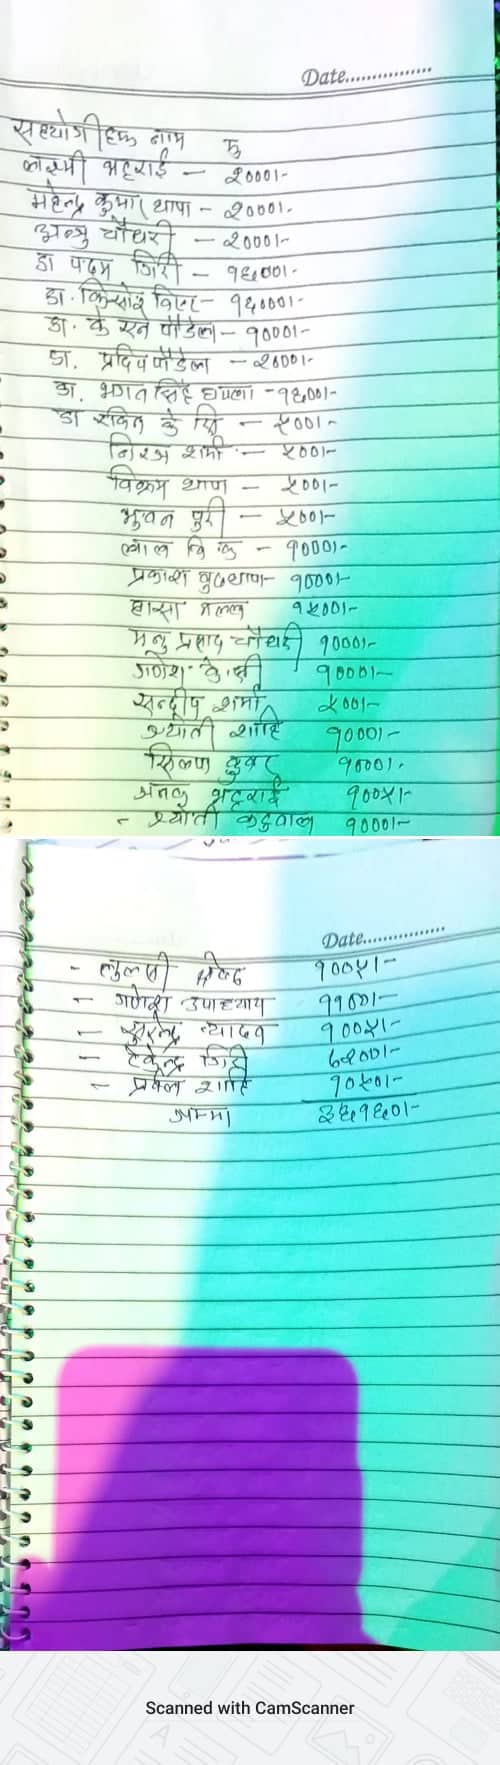 Date................
सहयोगीहरू नाम रु
लक्ष्मी भट्टराई — २०००।-
महेन्द्र कुमार थापा - २०००।-
अन्जु चौधरी — २०००।-
डा पदम गिरी —
डा. किशोर
डा. के एन पौडेल — १०००।-
डा. प्रदिप पौडेल — २०००।-
डा. भगत सिंह
डा रबिन के सि — ५००।-
निरज शर्मा — ५००।-
विक्रम थापा — ५००।-
भुवन पुरी — ५००।-
लाल वि क - १०००।-
प्रकाश बुढथापा- १०००।-
मल्ल १५००।-
मनु प्रसाद चौधरी १०००।-
गणेश के.सी १०००।-
सन्दीप शर्मा ५००।-
ज्योती शाहि १०००।-
कुवर १०००।-
भट्टराई १००५।-
- ज्योती कटुवाल १०००।-
Date................
- तुलसी १००५।-
- गणेश उपाध्याय ११००।-
- सुरेन्द्र यादव १००५।-
- देवेन्द्र गिरी
- शाहि १०५०।-
जम्मा
Scanned with CamScanner